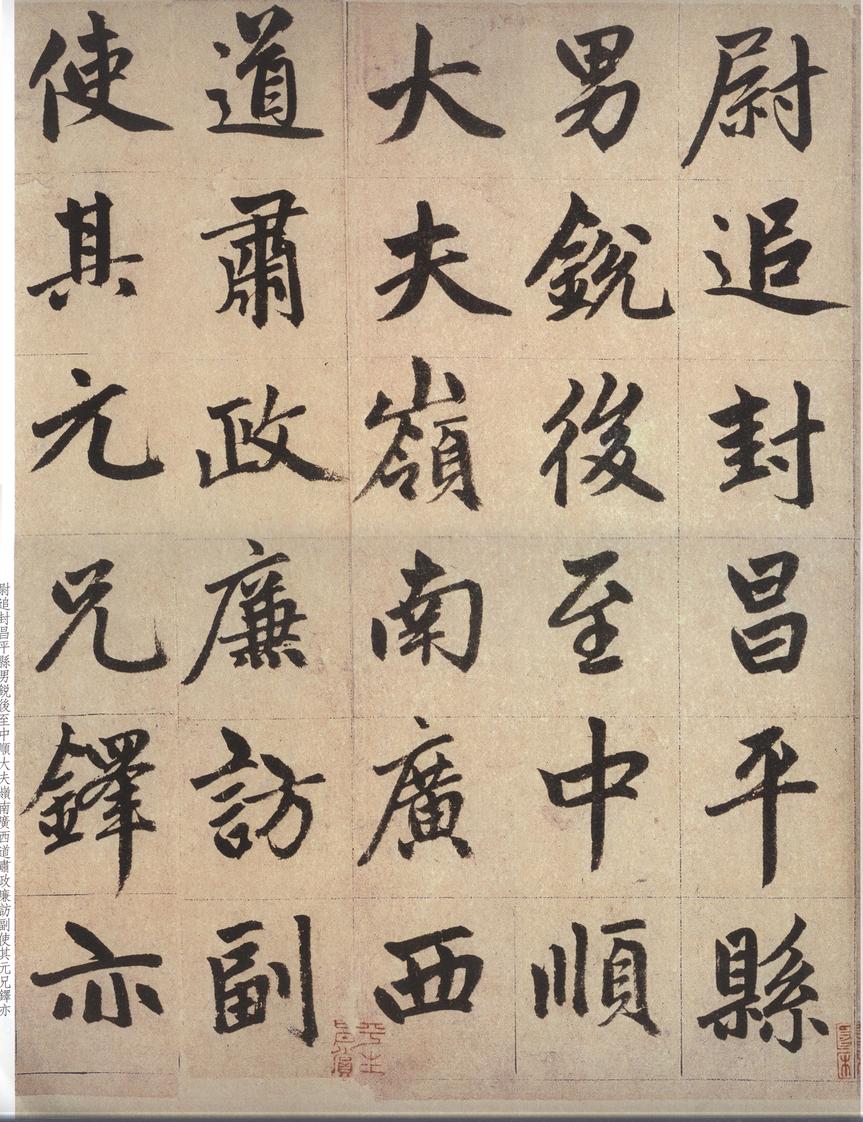 尉追封昌平縣
男銳後至中順
大夫嶺南廣西
道肅政廉訪副
使其元兄鐸亦
尉追封昌平縣男銳後至中順大夫嶺南廣西道肅政廉訪副使其元兄鐸亦